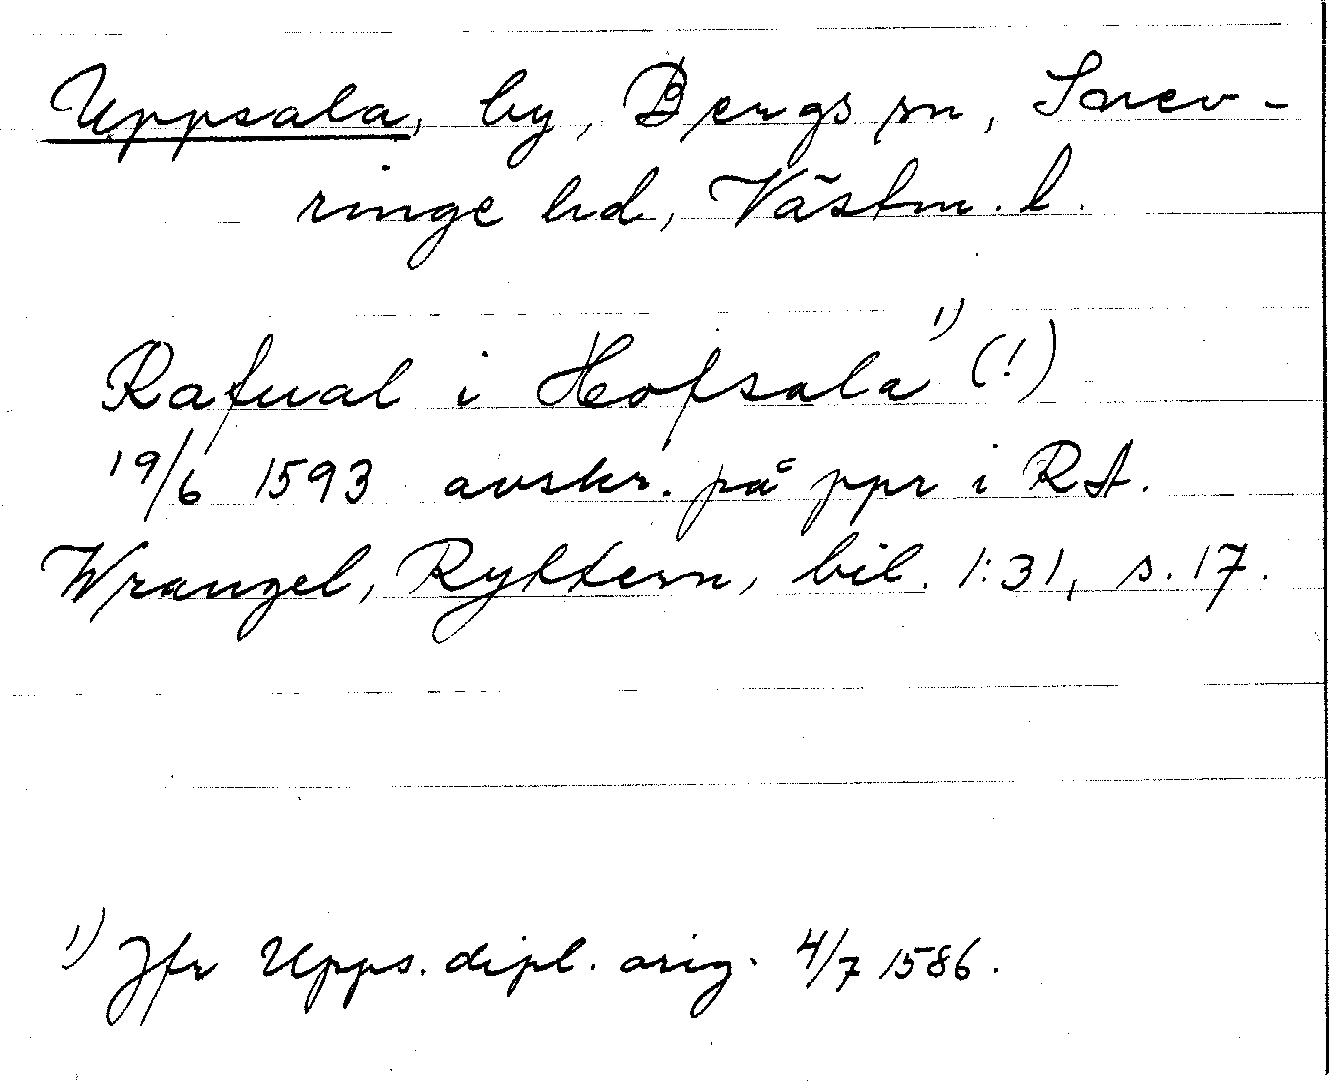 Uppsala, by, Bergs sn, Snev-
ringe hd, Västm. l.
Rafual i Hofsala ¹⁾ (!)
19/6 1593 avskr. på ppr i RA.
Wrangel, Ryttern, bil. 1:31, s. 17.
¹⁾ Jfr Upps. dipl. orig. 4/7 1586.